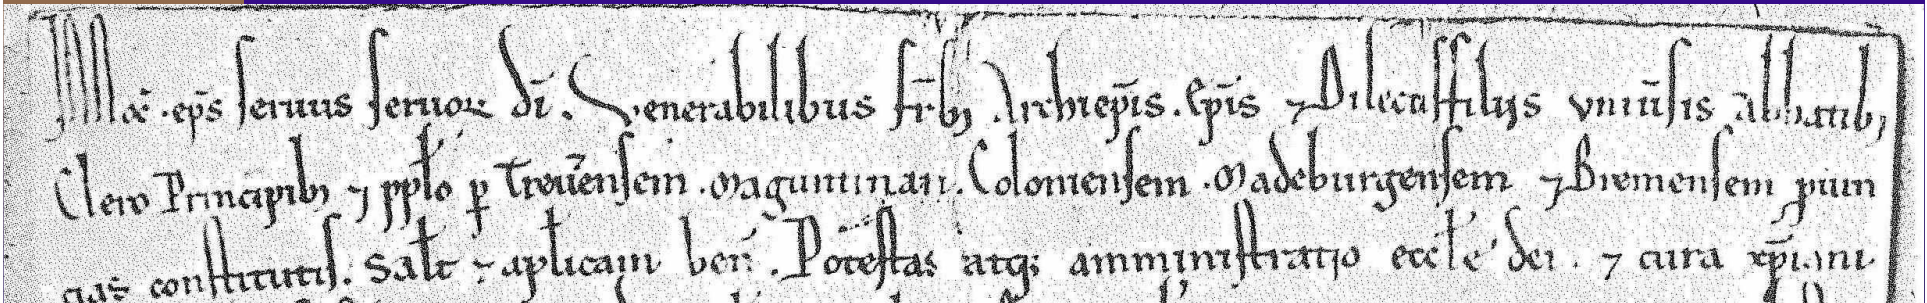 Alex̄. ep̄s seruus seruoꝝ dī. Venerabilibus fr̄ib; Archiep̄is. Ep̄is ⁊ Dilectis filijs vniūsis abbatib;
Clero Principib; ⁊ pplo p Treuēnsem. Maguntinam. Coloniensem. Madeburgensem ⁊ Bremensem puin
cias constitutis. Salt ⁊ aplicam ben̄. Potestas atq; amministratio eccle dei. ⁊ cura xp̄iani